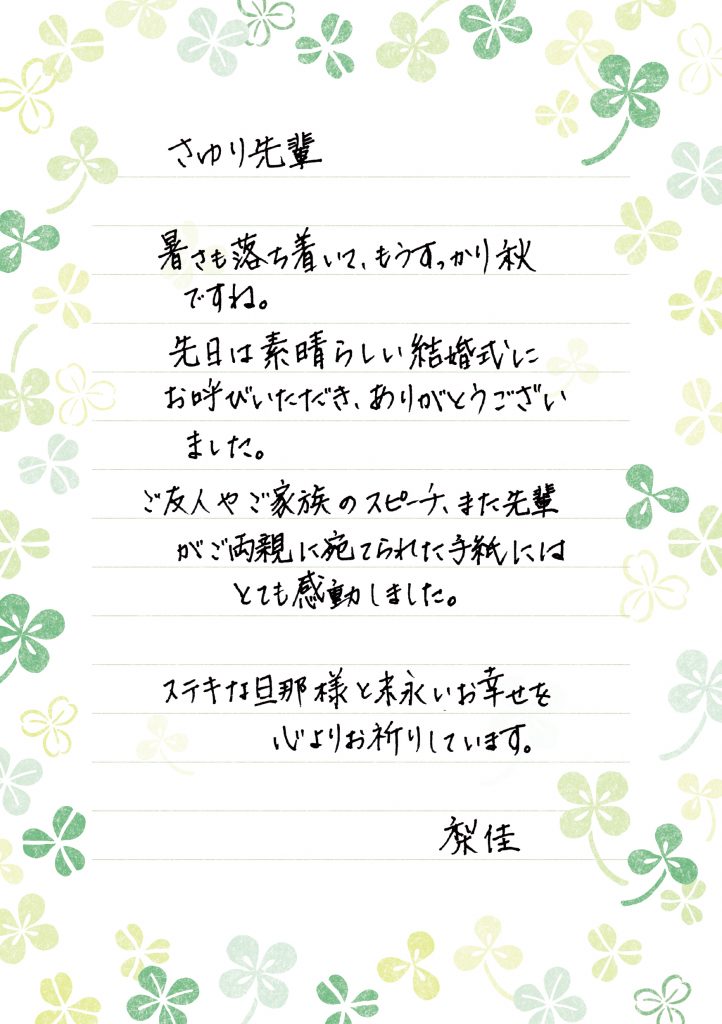 さゆり先輩
暑さも落ち着いて、もうすっかり秋
ですね。
先日は素晴らしい結婚式に
お呼びいただき、ありがとうござい
ました。
ご友人やご家族のスピーチ、また先輩
がご両親に宛てられた手紙には
とても感動しました。
ステキな旦那様と末永いお幸せを
心よりお祈りしています。
梨佳